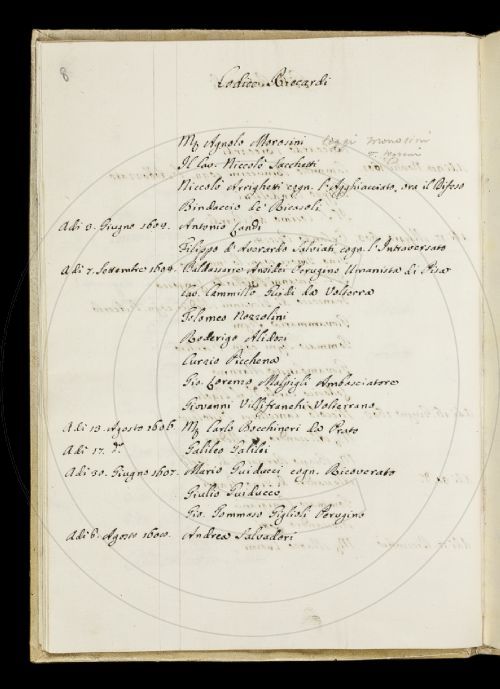 8
Codice Riccardi
Mʳ Agnolo Morosini leggi monosini
Il Cav. Niccolò Sacchetti
Niccolò Arrighetti cogn. l'Agghiacciato, ora il Difeso
Bindaccio de' Ricasoli
Adì 9. Giugno 1602. Antonio Landi
Filippo d'Averardo Salviati cogn. l'Intraversato
Adì 7. Settembre 1604. Baldassarre Ansidei Perugino Umanista di Pisa
Cav. Cammillo Guidi da Volterra
Tolomeo Nozzolini
Roderigo Alidosi
Curzio Picchena
Gio. Lorenzo Malpigli Ambasciatore
Giovanni Villifranchi Volterrano
Adì 13. Agosto 1606 Mʳ Carlo Bocchineri da Prato
Adì 17. dº. Galileo Galilei
Adì 30. Giugno 1607. Mario Guiducci cogn. Ricoverato
Giulio Guiducci
Gio. Tommaso Giglioli Perugino
Adì 6. Agosto Andrea Salvadori